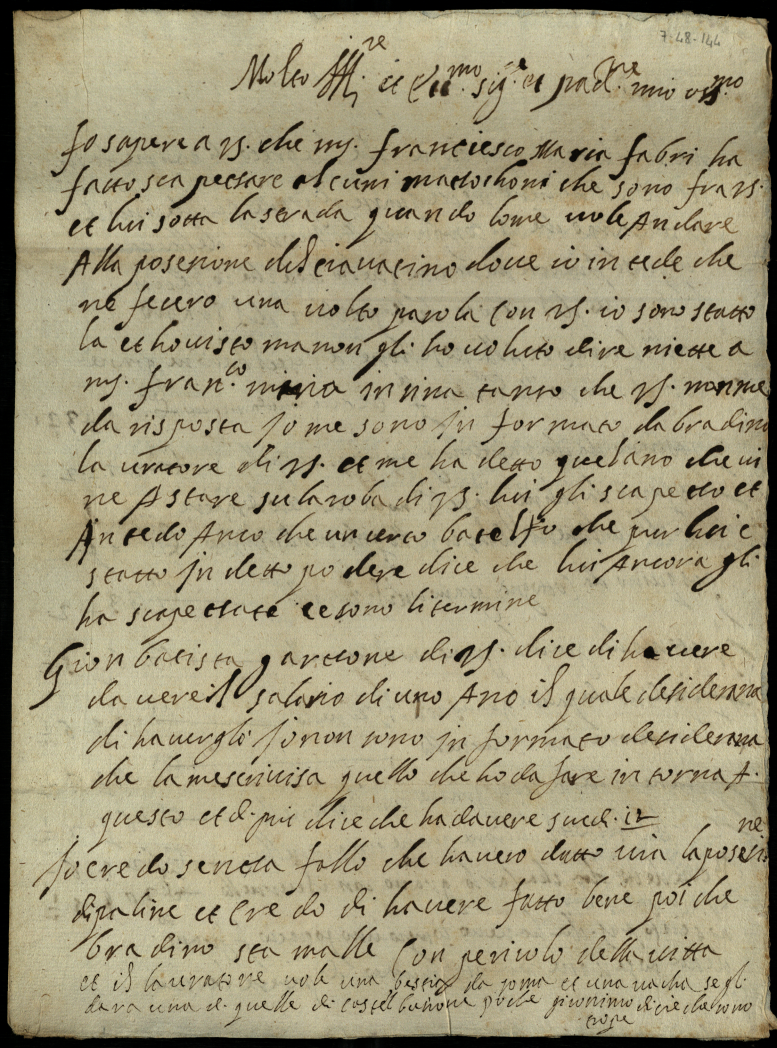 7-48-144
Molto Ill.re et Ecc.mo sig.re et pad.ne mio oss.mo
fo sapere a VS. che ms. franciesco Maria fabri ha
fatto scapectare alcuni mattochoni che sono fra VS.
et lui sotta la strada quando lome vole Andare
Alla posesione del ciavatino dove io intede che
ne fecero una volta parola con VS. io sono statto
la et ho visto ma non gli ho voluto dire niette a
ms. fran.co maria in sina tanto che VS. non me
da risposta jo me sono jn formato da bradino
lavratore di VS. et me ha detto quelano che vi
ne Astare su la roba di VS. lui gli scapetto et
Antedo Anco che un certo che pur lui e
statto jn detto podere dice che lui Ancora gli
ha scapettate e sono li termine
Gion batista garttone di VS. dice di havere
da vere il salario di uno Ano il quale desiderava
di havergli jo non sono jn formato desiderava
che la me scrivisa quello che ho da fare in torna A.
questo et di piu dice che ha davere scudi 12
jo credo sentta fallo che havero datto via la posesione
di paline et Credo di havere fatto bene poi che
bradino sta malle Con pericolo della vitta
et il lavratore vole una bestia da soma et una vacha se gli
dara una di quelle di castel poche gironimo dicie che sono
trope